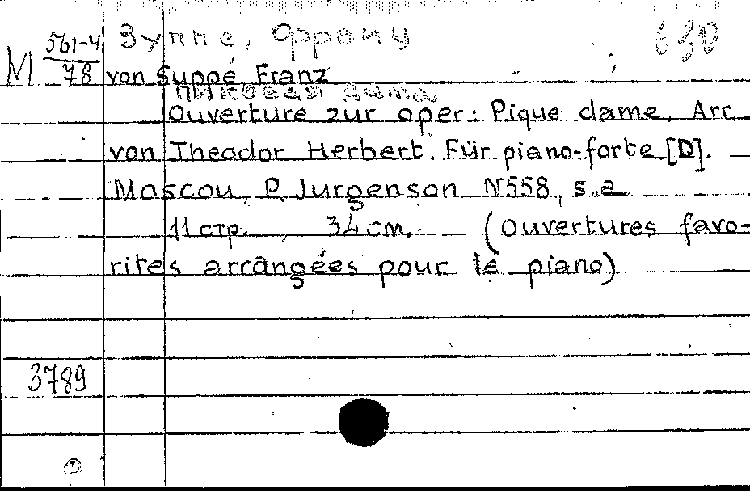 Зуппе, Франц 630
М 561-4/78
von Suppé, Franz
Пиковая дама
Ouverture zur oper: Pique dame. Arr.
von Theodor Herbert. Für piano-forte [D].
Moscou, P. Jurgenson N558, s.a.
11 стр., 34 см. (Ouvertures favo-
rites arrangées pour le piano)
3789